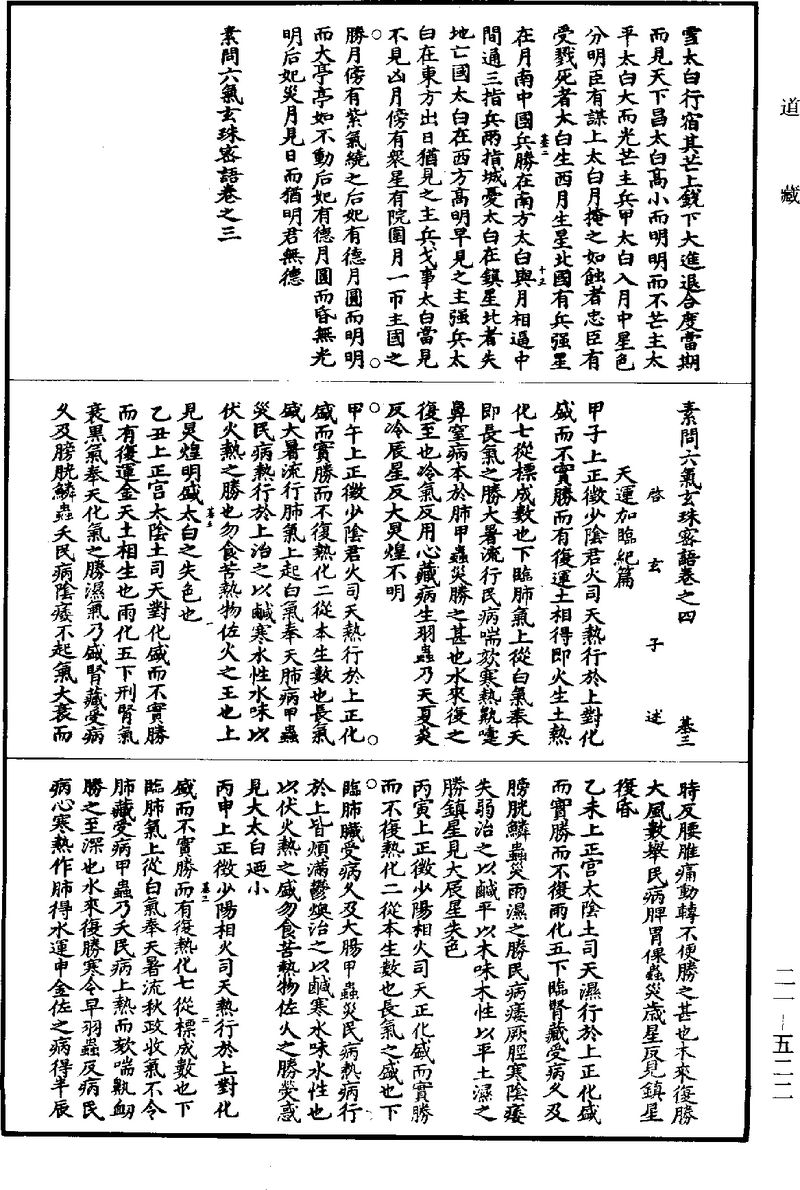 道藏
雪太白行宿其芒上銳下大進退合度當期
而見天下昌太白高小而明明而不芒主太
平太白大而光芒主兵甲太白入月中星色
分明臣有謀上太白月掩之如蝕者忠臣有
受戮死者太白生西月生星北國有兵强星
在月南中國兵勝在南方太白與月相逼中
間通三指兵兩指城憂太白在鎮星北者失
地亡國太白在西方高明早見之主强兵太
白在東方出日猶見之主兵戈事太白當見
不見凶月傍有衆星有院圍月一帀主國之
勝月傍有紫氣繞之后妃有德月圓而明明
而大亭亭如不動后妃有德月圓而昏無光
明后妃災月見日而猶明君無德
素問六氣玄珠密語卷之三
素問六氣玄珠密語卷之四 基三
啓玄子述
天運加臨紀篇
甲子上正徵少陰君火司天熱行於上對化
盛而不實勝而有復運土相得即火生土熱
化七從標成數也下臨肺氣上從白氣奉天
即長氣之勝大暑流行民病喘欬寒熱鼽嚏
鼻窒病本於肺甲蟲災勝之甚也水來復之
復至也冷氣反用心藏病生羽蟲乃夭夏炎
反冷辰星反大熒煌不明
甲午上正徵少陰君火司天熱行於上正化
盛而實勝而不復熱化二從本生數也長氣
盛大暑流行肺氣上起白氣奉天肺病甲蟲
災民病熱行於上治之以鹹寒水性水味以
伏火熱之勝也勿食苦熱物佐火之王也上
見熒煌明盛太白之失色也
乙丑上正宫太陰土司天對化盛而不實勝
而有復運金天土相生也雨化五下刑腎氣
衰黑氣奉天化氣之勝濕氣乃盛腎藏受病
久及膀胱鱗蟲夭民病陰痿不起氣大衰而
時反腰脽痛動轉不便勝之甚也木來復勝
大風數舉民病脾胃倮蟲災歲星反見鎮星
復昏
乙未上正宫太陰土司天濕行於上正化盛
而實勝而不復雨化五下臨腎藏受病久及
膀胱鱗蟲災雨濕之勝民病痿厥脛寒陰痿
失弱治之以鹹平以木味木性以平土濕之
勝鎮星見大辰星失色
丙寅上正徵少陽相火司天正化盛而實勝
而不復熱化二從本生數也長氣之盛也下
臨肺臟受病久及大腸甲蟲災民病熱病行
於上皆煩滿鬱燠治之以鹹寒水味水性也
以伏火熱之盛勿食苦熱物佐火之勝熒惑
見大太白廼小
丙申上正徵少陽相火司天熱行於上對化
盛而不實勝而有復熱化七從標成數也下
臨肺氣上從白氣奉天暑流秋政收氣不令
肺藏受病甲蟲乃夭民病上熱而欬喘鼽衂
勝之至深也水來復勝寒令早羽蟲反病民
病心寒熱作肺得水運申金佐之病得半辰
二一—五二二